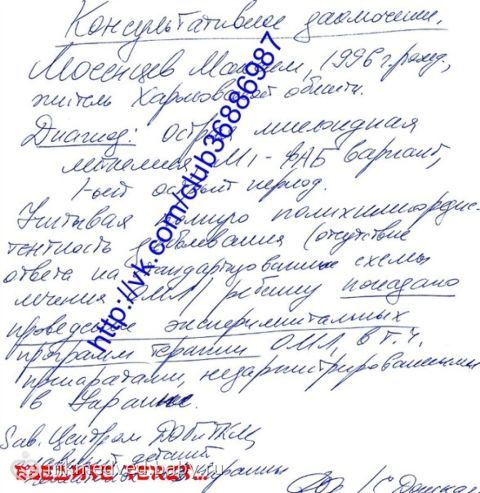 Консультативное заключение.
Мосенцев Максим, 1996 г. рожд,
житель Харьковской области.
Диагноз: острая миелоидная
лейкемия M1-ФАБ вариант,
1-ый острый период.
Учитывая полихимиорезис-
тентность заболевания (отсутствие
ответа на стандартизованные схемы
лечения ОМЛ) ребенку показано
проведение экспериментальных
программ терапии ОМЛ, в т.ч.
препаратами, незарегистрированными
в Украине.
Зав. Центром
главный детский
Украины
http://vk.com/club36886987